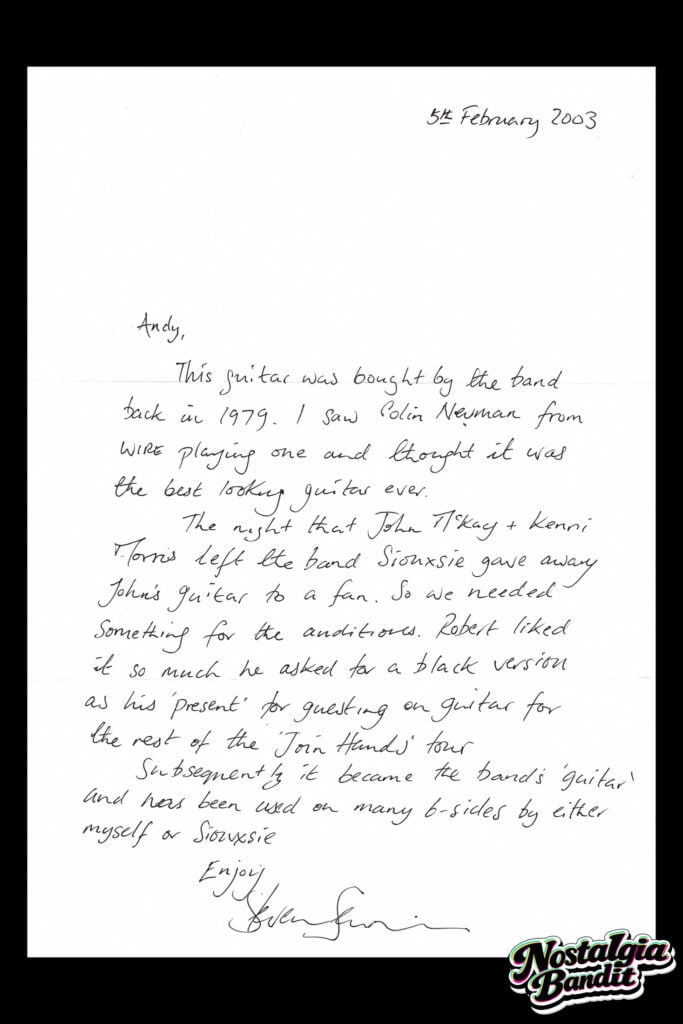 5th February 2003
Andy,
This guitar was bought by the band
back in 1979. I saw Colin Newman from
WIRE playing one and thought it was
the best looking guitar ever.
The night that John McKay + Kenni
Morris left the band Siouxsie gave away
John's guitar to a fan. So we needed
something for the auditions. Robert liked
it so much he asked for a black version
as his 'present' for guesting on guitar for
the rest of the 'Join Hands' tour
Subsequently it became the band's 'guitar'
and has been used on many b-sides by either
myself or Siouxsie
Enjoy
Steven Severin
Nostalgia
Bandit